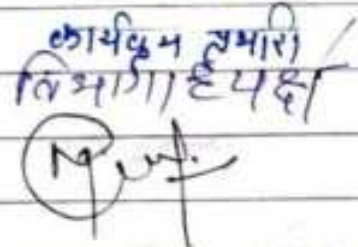 कार्यक्रम प्रभारी /
विभागाध्यक्ष